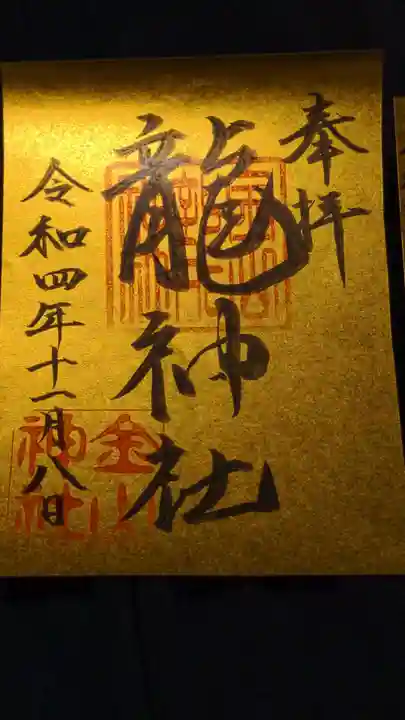 奉拝
龍神社
令和四年十一月八日
金山
神社